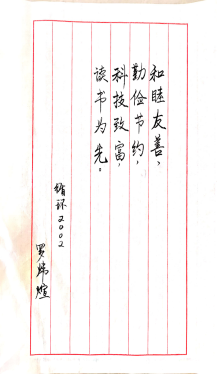 和睦友善，
勤俭节约，
科技致富，
读书为先。
循环2002
罗炜煊